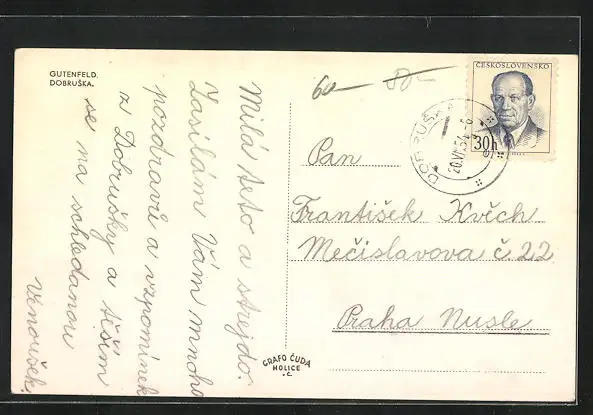 GUTENFELD.
DOBRUŠKA.
Milá teto a strejdo.
Zasílám Vám mnoho
pozdravů a vzpomínek
z Dobrušky a těším
se na schledanou
Venoušek.
60 80
ČESKOSLOVENSKO
30h
DOBRUŠKA
20.VII.54-8
Pan
František Kvěch
Mečislavova č. 22
Praha Nusle
GRAFO ČUDA
HOLICE
.C.